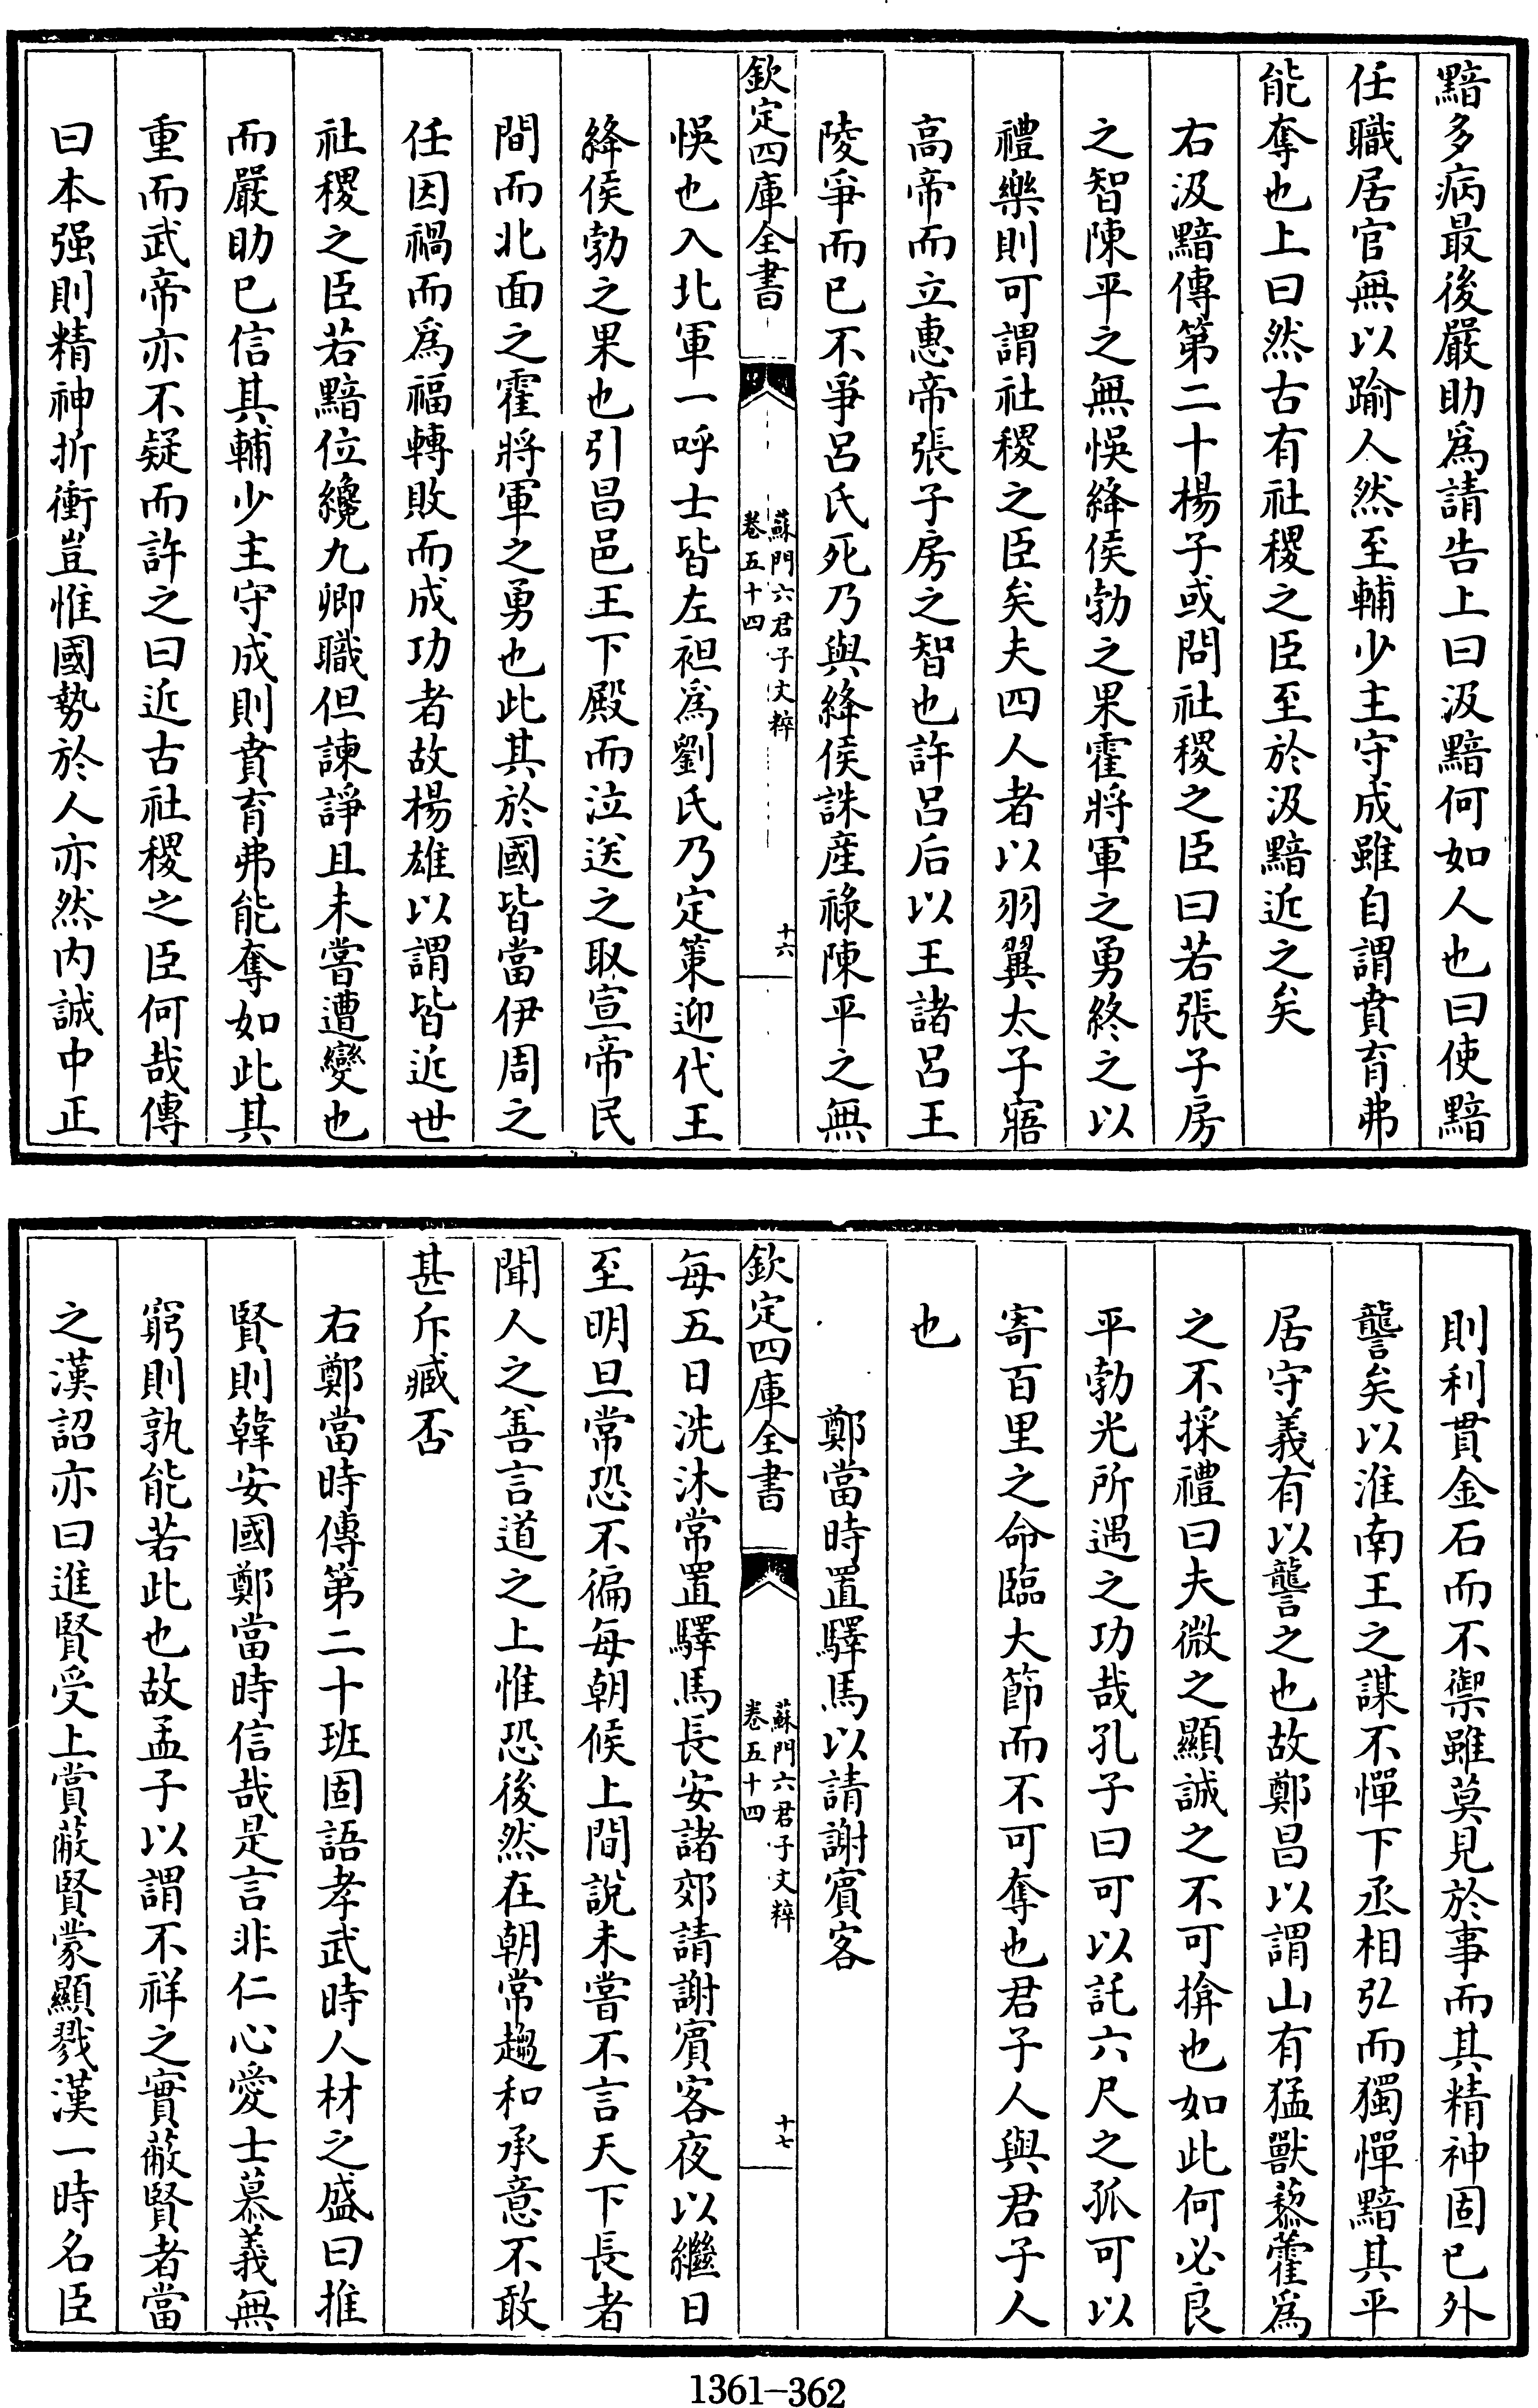 黯多病最後嚴助爲請告上曰汲黯何如人也曰使黯
任職居官無以踰人然至輔少主守成雖自謂賁育弗
能奪也上曰然古有社稷之臣至於汲黯近之矣
右汲黯傳第二十楊子或問社稷之臣曰若張子房
之智陳平之無悞絳侯勃之果霍將軍之勇終之以
禮樂則可謂社稷之臣矣夫四人者以羽翼太子寤
高帝而立惠帝張子房之智也許呂后以王諸呂王
陵爭而已不爭呂氏死乃與絳侯誅産祿陳平之無
欽定四庫全書
蘇門六君子文粹
卷五十四
十六
悞也入北軍一呼士皆左袒爲劉氏乃定策迎代王
絳侯勃之果也引昌邑王下殿而泣送之取宣帝民
間而北面之霍將軍之勇也此其於國皆當伊周之
任因禍而爲福轉敗而成功者故楊雄以謂皆近世
社稷之臣若黯位纔九卿職但諫諍且未嘗遭變也
而嚴助已信其輔少主守成則賁育弗能奪如此其
重而武帝亦不疑而許之曰近古社稷之臣何哉傳
曰本强則精神折衝豈惟國勢於人亦然内誠中正
則利貫金石而不禦雖莫見於事而其精神固已外
讋矣以淮南王之謀不憚下丞相弘而獨憚黯其平
居守義有以讋之也故鄭昌以謂山有猛獸藜藿爲
之不採禮曰夫微之顯誠之不可揜也如此何必良
平勃光所遇之功哉孔子曰可以託六尺之孤可以
寄百里之命臨大節而不可奪也君子人與君子人
也
鄭當時置驛馬以請謝賓客
欽定四庫全書
蘇門六君子文粹
卷五十四
十七
每五日洗沐常置驛馬長安諸郊請謝賓客夜以繼日
至明旦常恐不徧每朝候上間說未嘗不言天下長者
聞人之善言道之上惟恐後然在朝常趨和承意不敢
甚斥臧否
右鄭當時傳第二十班固語孝武時人材之盛曰推
賢則韓安國鄭當時信哉是言非仁心愛士慕義無
窮則孰能若此也故孟子以謂不祥之實蔽賢者當
之漢詔亦曰進賢受上賞蔽賢蒙顯戮漢一時名臣
1361-362